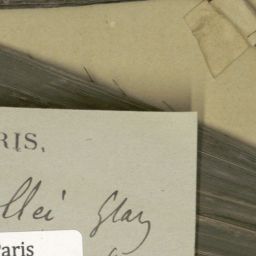 RIS.
llei Glaz
aris